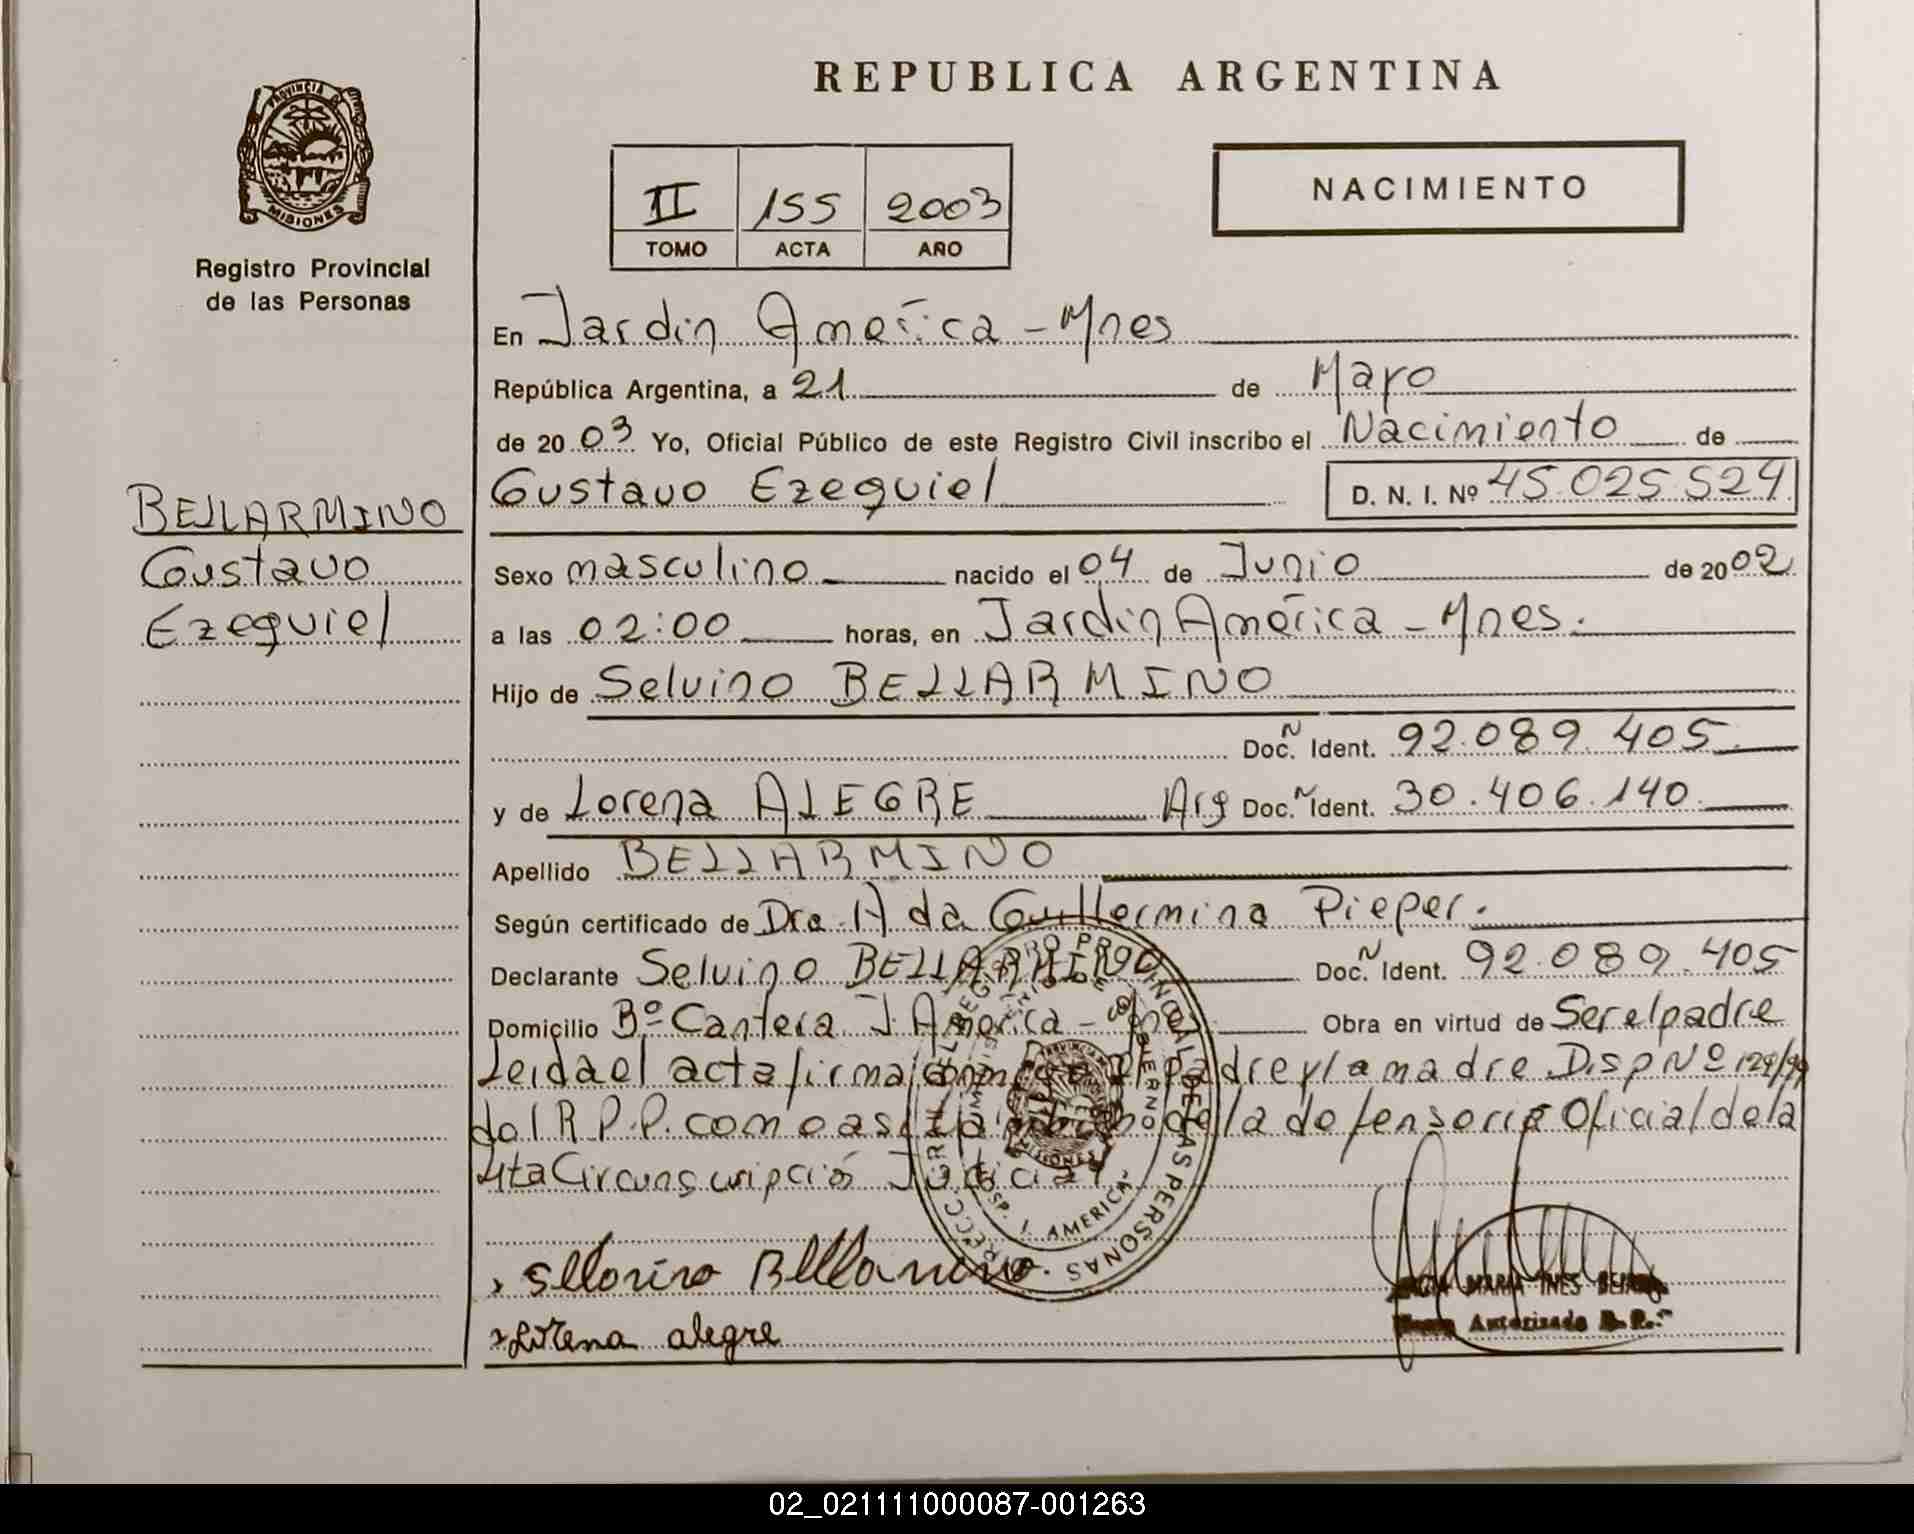 REPUBLICA ARGENTINA
PROVINCIA D
MISIONES
Registro Provincial
de las Personas
II 155 2003
TOMO ACTA AÑO
NACIMIENTO
En Jardin América - Mnes
República Argentina, a 21 de Mayo
de 2003 Yo, Oficial Público de este Registro Civil inscribo el Nacimiento de
Gustavo Ezequiel D. N. I. Nº 45.025.524
BELLARMINO
Gustavo
Ezequiel
Sexo masculino nacido el 04 de Junio de 2002
a las 02:00 horas, en Jardin América - Mnes.
Hijo de Selvino BELLARMINO
Doc. Ident. 92.089.405
y de Lorena ALEGRE Arg Doc. Ident. 30.406.140
Apellido BELLARMINO
Según certificado de Dra. Ada Guillermina Pieper.
Declarante Selvino BELLARMINO Doc. Ident. 92.089.405
Domicilio Bº Cantera J. América - Mnes Obra en virtud de Ser el padre
Leida el acta firma conmigo el padre y la madre Disp Nº 129/99
del R.P.P. como asi la defensoria Oficial de la
4ta Circunscripció Judicial
Sellorino Bellarmino
Lorena alegre
MARIA INES
Autorizado
PROVINCIAL DE LAS PERSONAS
GOBIERNO
MISIONES
J. AMERICA
02_021111000087-001263